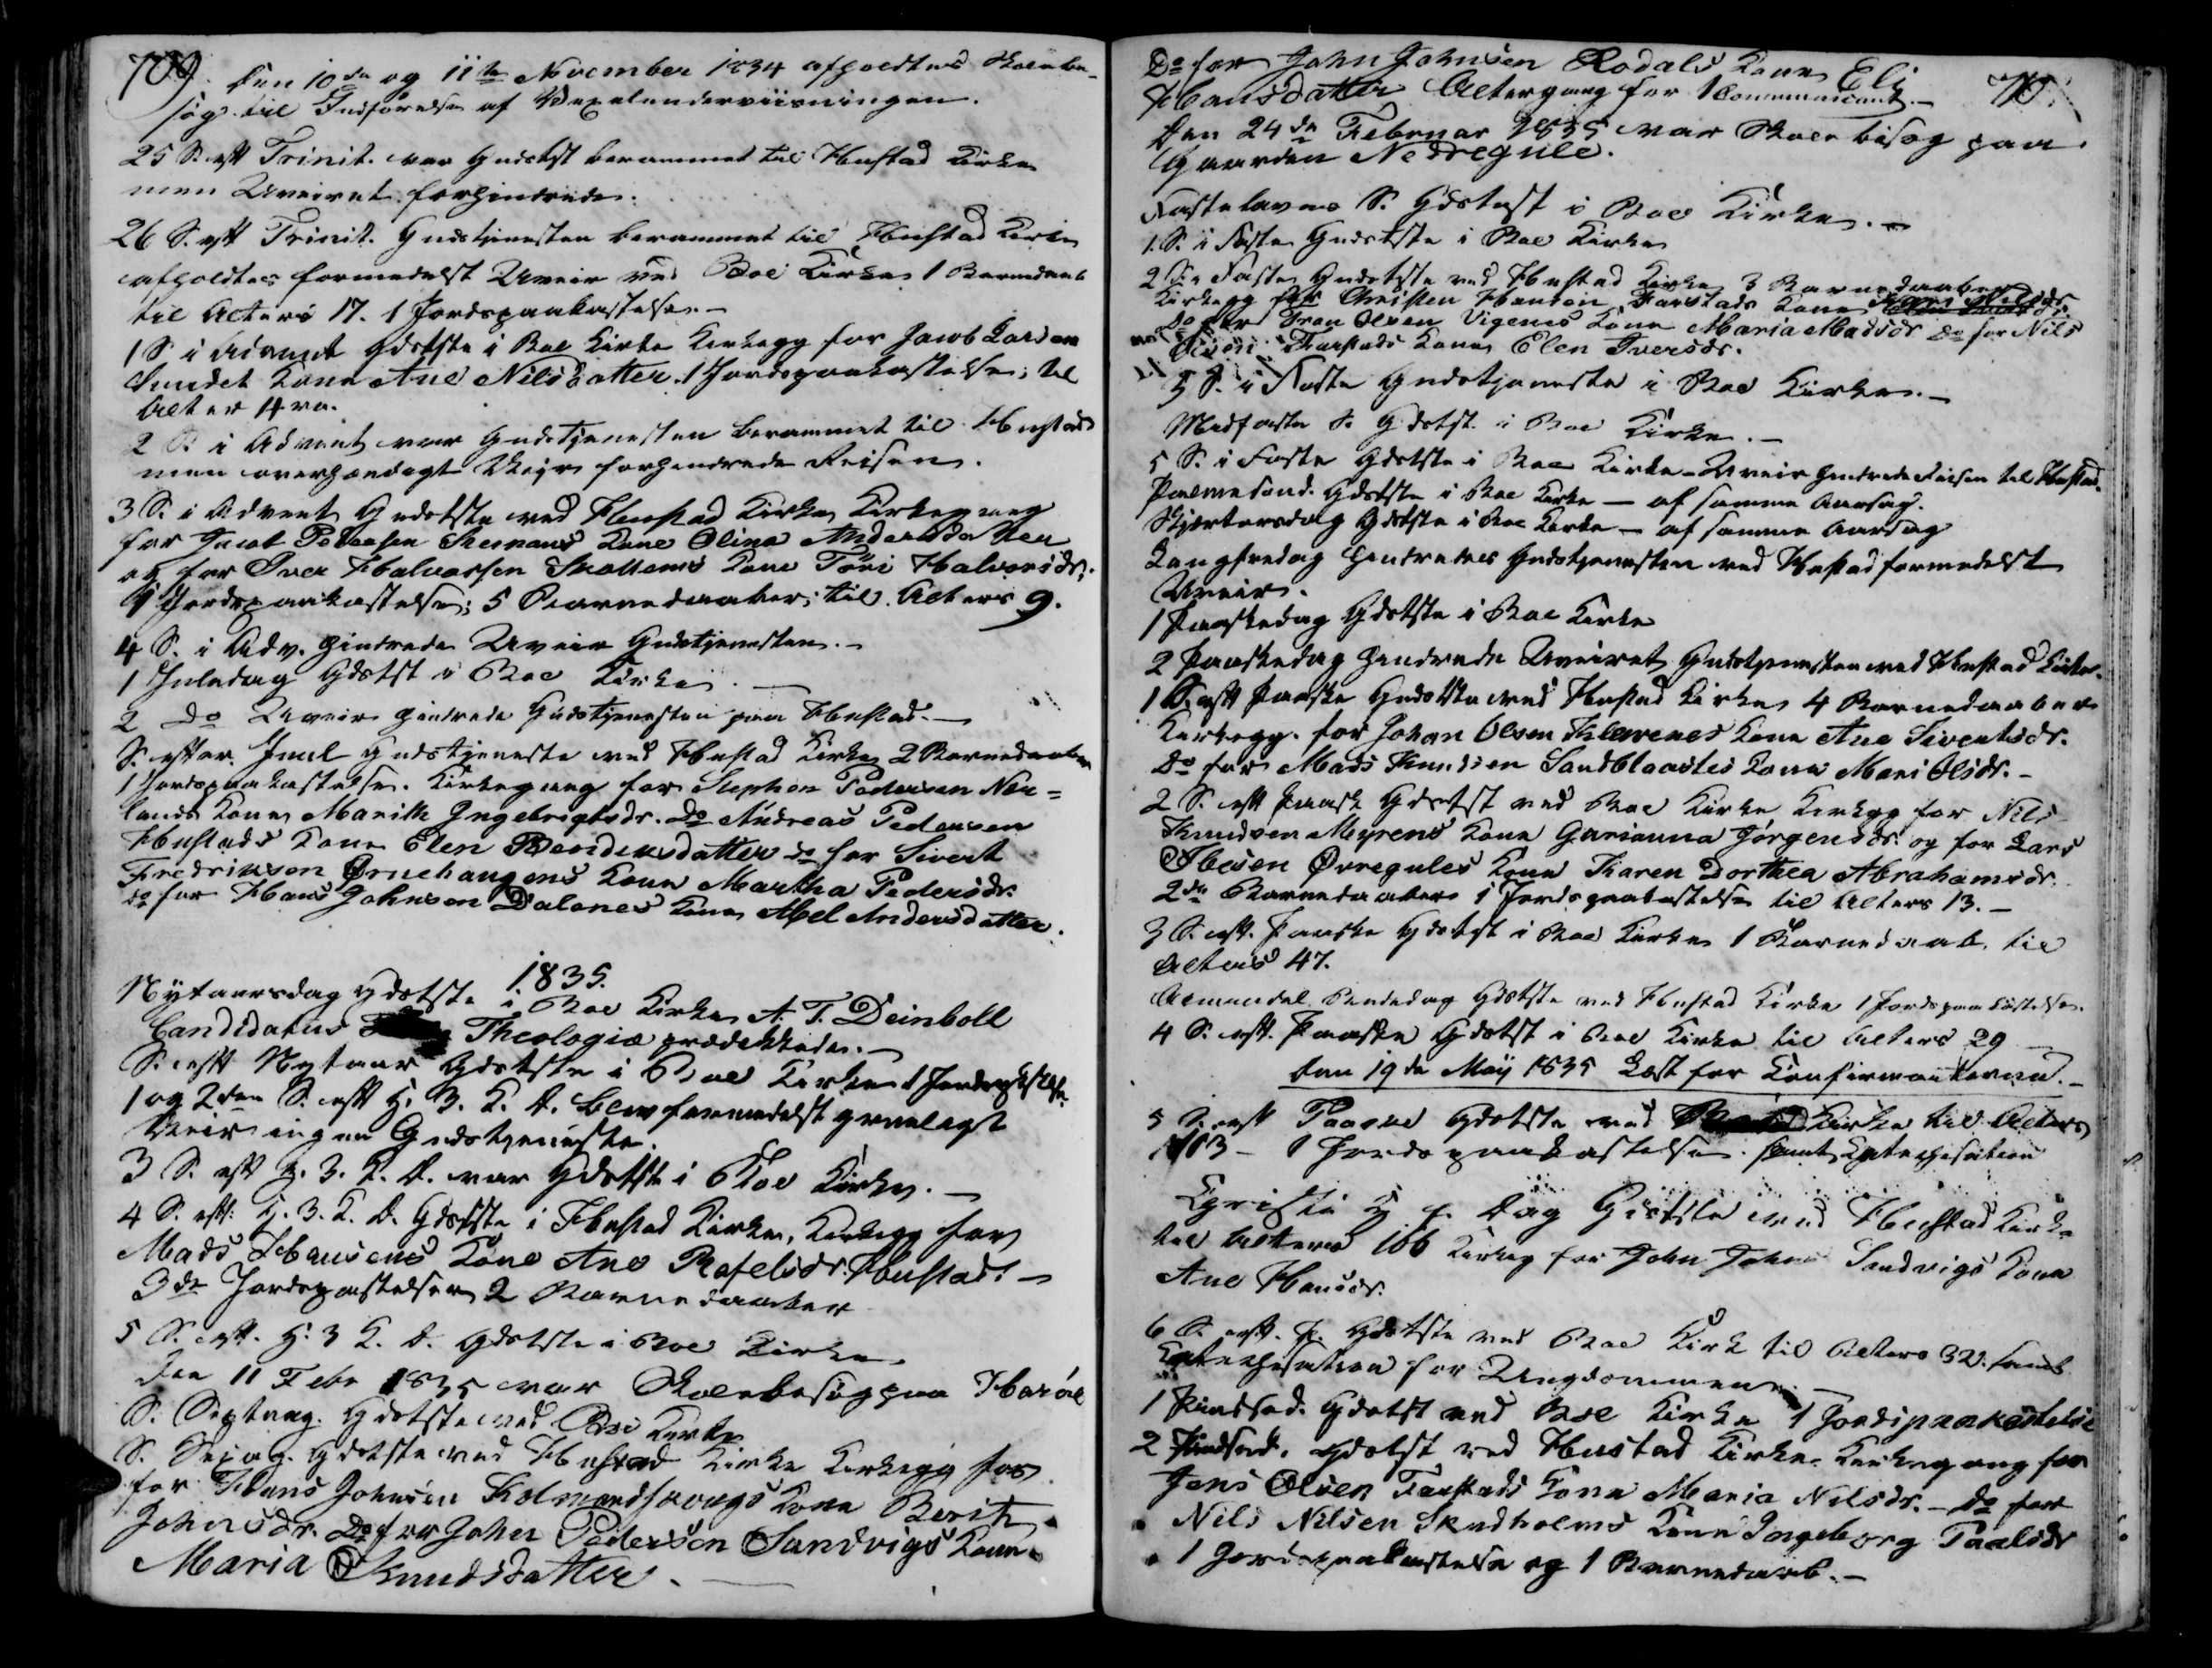 709.
den 10de og 11te November 1834 afholdtes Skolebe-
søg til Indførelse af Vexelunderviisningen.
25 S. eft Trinit. var Gudstst berammet til Hustad Kirke
men Uveiret forhindrede.
26 S. eft Trinit. Gudstjenesten berammet til Hustad Kirke
afholdtes formedelst Uveir ved Boe Kirke, 1 Barnedaab
til Alters 17. 1 Jordspaakastelse.-
1 S. i Advent Gdstste i Boe Kirke Kirkegg for Jacob Larsen
Sundet Kone Ane Nilsdatter, 1 Jordspaakastelse; til
Alter
2 S. i Advent var Gudstjenesten berammet til Hustad
men overhændigt Veir forhindrede Reisen.
3 S. i Advent Gudstste ved Hustad Kirke, Kirkegang
for Jacob Pedersen Kone Olina Andersdatter
og for Iver Halvorsen Skottems Kone Töri Halvorsdr.
1 Jordspaakastelse; 5 Barnedaaber; til Alters 9.
4 S. i Adv. hindrede Uveir Gudstjenesten.-
1 Juledag Gdstst i Boe Kirke. -
2 do Uveir hindrede Gudstjenesten paa Hustad.-
S. efter Juul Gudstjeneste ved Hustad Kirke 2 Barnedaaber
1 Jordspaakastelse. Kirkegang for Stephen Pedersen Ner=
lands Kone Marith Ingebrigtsdr. do Andreas Pedersen
Hustads Kone Elen Bendixsdatter do for Sivert
Fredriksen Ørnehaugens Kone Martha Pedersdr.
do for Hans Johnsen Dalenes Kone Abel Andersdatter.
1835.
Nytaarsdag Gdstste i Boe Kirke A. T. Deinboll
Candidatus Theologiæ prædikede.-
S. eft Nytaar Gdstste i Boe Kirke 1
1 og 2den S. eft H. 3. K. D. blev formedelst grueligt
Veir ingen Gudstjeneste.
3 S. eft H. 3. K. D. var Gdstste i Boe Kirke.-
4 S. eft: H. 3. K. D. Gdstste i Hustad Kirke, Kirkegg for
Mads Hansens Kone Ane Rafelsdr. Hustad! -
3de 2 Barnedaaber
5 S. eft. H. 3 K. D. Gdstste i Boe Kirke
den 11 Febr 1835 var Skolebesøg paa Harøe
S. Septuag. Gdstste ved Boe Kirke
S. Sexag. Gdstste ved Hustad Kirke Kirkegg for
for Hans Johnsen Kone Berit
Johnsdr. Do for John Pedersen Sandvigs Kone
Maria Knudsdatter. -
710.
Do for John Johnsen Rodals Kone Eli
Hansdatter Altergang for 1 Communicant.-
Den 24de Februar 1835 var Skolebesøg paa
Gaarden Nedregule.
Fastelavns S. Gdstst i Boe Kirke.-
1 S. i Faste Gudstste i Boe Kirke
2 S. i Faste Gudstste ved Hustad Kirke 3 Barnedaaber
Kirkegg for Christen Hansen Farstads Kone
do for Iver Olsen Vigenes Kone Maria Madsdr do for Nils
Olsen Farstads Kone Elen Iversdr.
3 S. i Faste Gudstjeneste i Boe Kirke.-
Midfaste S. Gdstst. i Boe Kirke.-
5 S. i Faste Gdstste i Boe Kirke - Uveir hindrede Reisen til Hustad.
Palmesönd. Gdstste i Boe Kirke - af samme Aarsag.
Skjertorsdag Gdstste i Boe Kirke - af samme Aarsag
Langfredag hindredes Gudstjenesten ved Hustad formedelst
Uveir.
1 Paaskedag Gdstste i Boe Kirke
2 Paaskedag hindrede Uveiret Gudstjenesten ved Hustad Kirke.
1 S. eft Paaske Gudstste ved Hustad Kirke, 4 Barnedaaber
Kirkegg. for Johan Olsen Kleivenes Kone Ane Sivertsdr.
Do for Mads Knudsen Sandblaastes Kone Mari Olsdr.-
2 S. eft Paask Gdstst ved Boe Kirke Kirkegg for Nils
Knudsen Myrens Kone Gurianna Jörgensdr. og for Lars
Ibesen Øvregules Kone Karen Dorthea Abrahamsdr.
2de Barnedaaber 1 Jordspaakastelse til Alters 13.-
3 S. eft. Paaske Gdstst i Boe Kirke 1 Barnedaab. til
Alters 47.
Almindel. Bededag Gdstste ved Hustad Kirke 1 Jordspaakastelse.
4 S. eft. Paaske Gdstst i Boe Kirke til Alters 29
den 19de May 1835 Læst for Confirmanterne.-
5 S. eft Paaske Gdstste ved Kirke til Alters
1 Jordspaakastelse. samt Catechisation
Christi H. f. Dag Gdstste ved Hustad Kirke
til Alters 166 Kirkeg for John Johns Sandvigs Kone
Ane Hansdr.
6 S. eft. P. Gdstste ved Boe Kirke til Alters 32. samt
Catechisation for Ungdommen.-
1 Pindsed. Gdstst ved Boe Kirke 1 Jordspaakastelse
2 Pindsed. Gdstst ved Hustad Kirke. Kirkegang for
Jens Olsen Farstads Kone Maria Nilsdr. - do for
Nils Nilsen Skudholms Kone Ingeborg Paalsdr
1 Jordspaakastelse og 1 Barnedaab.-